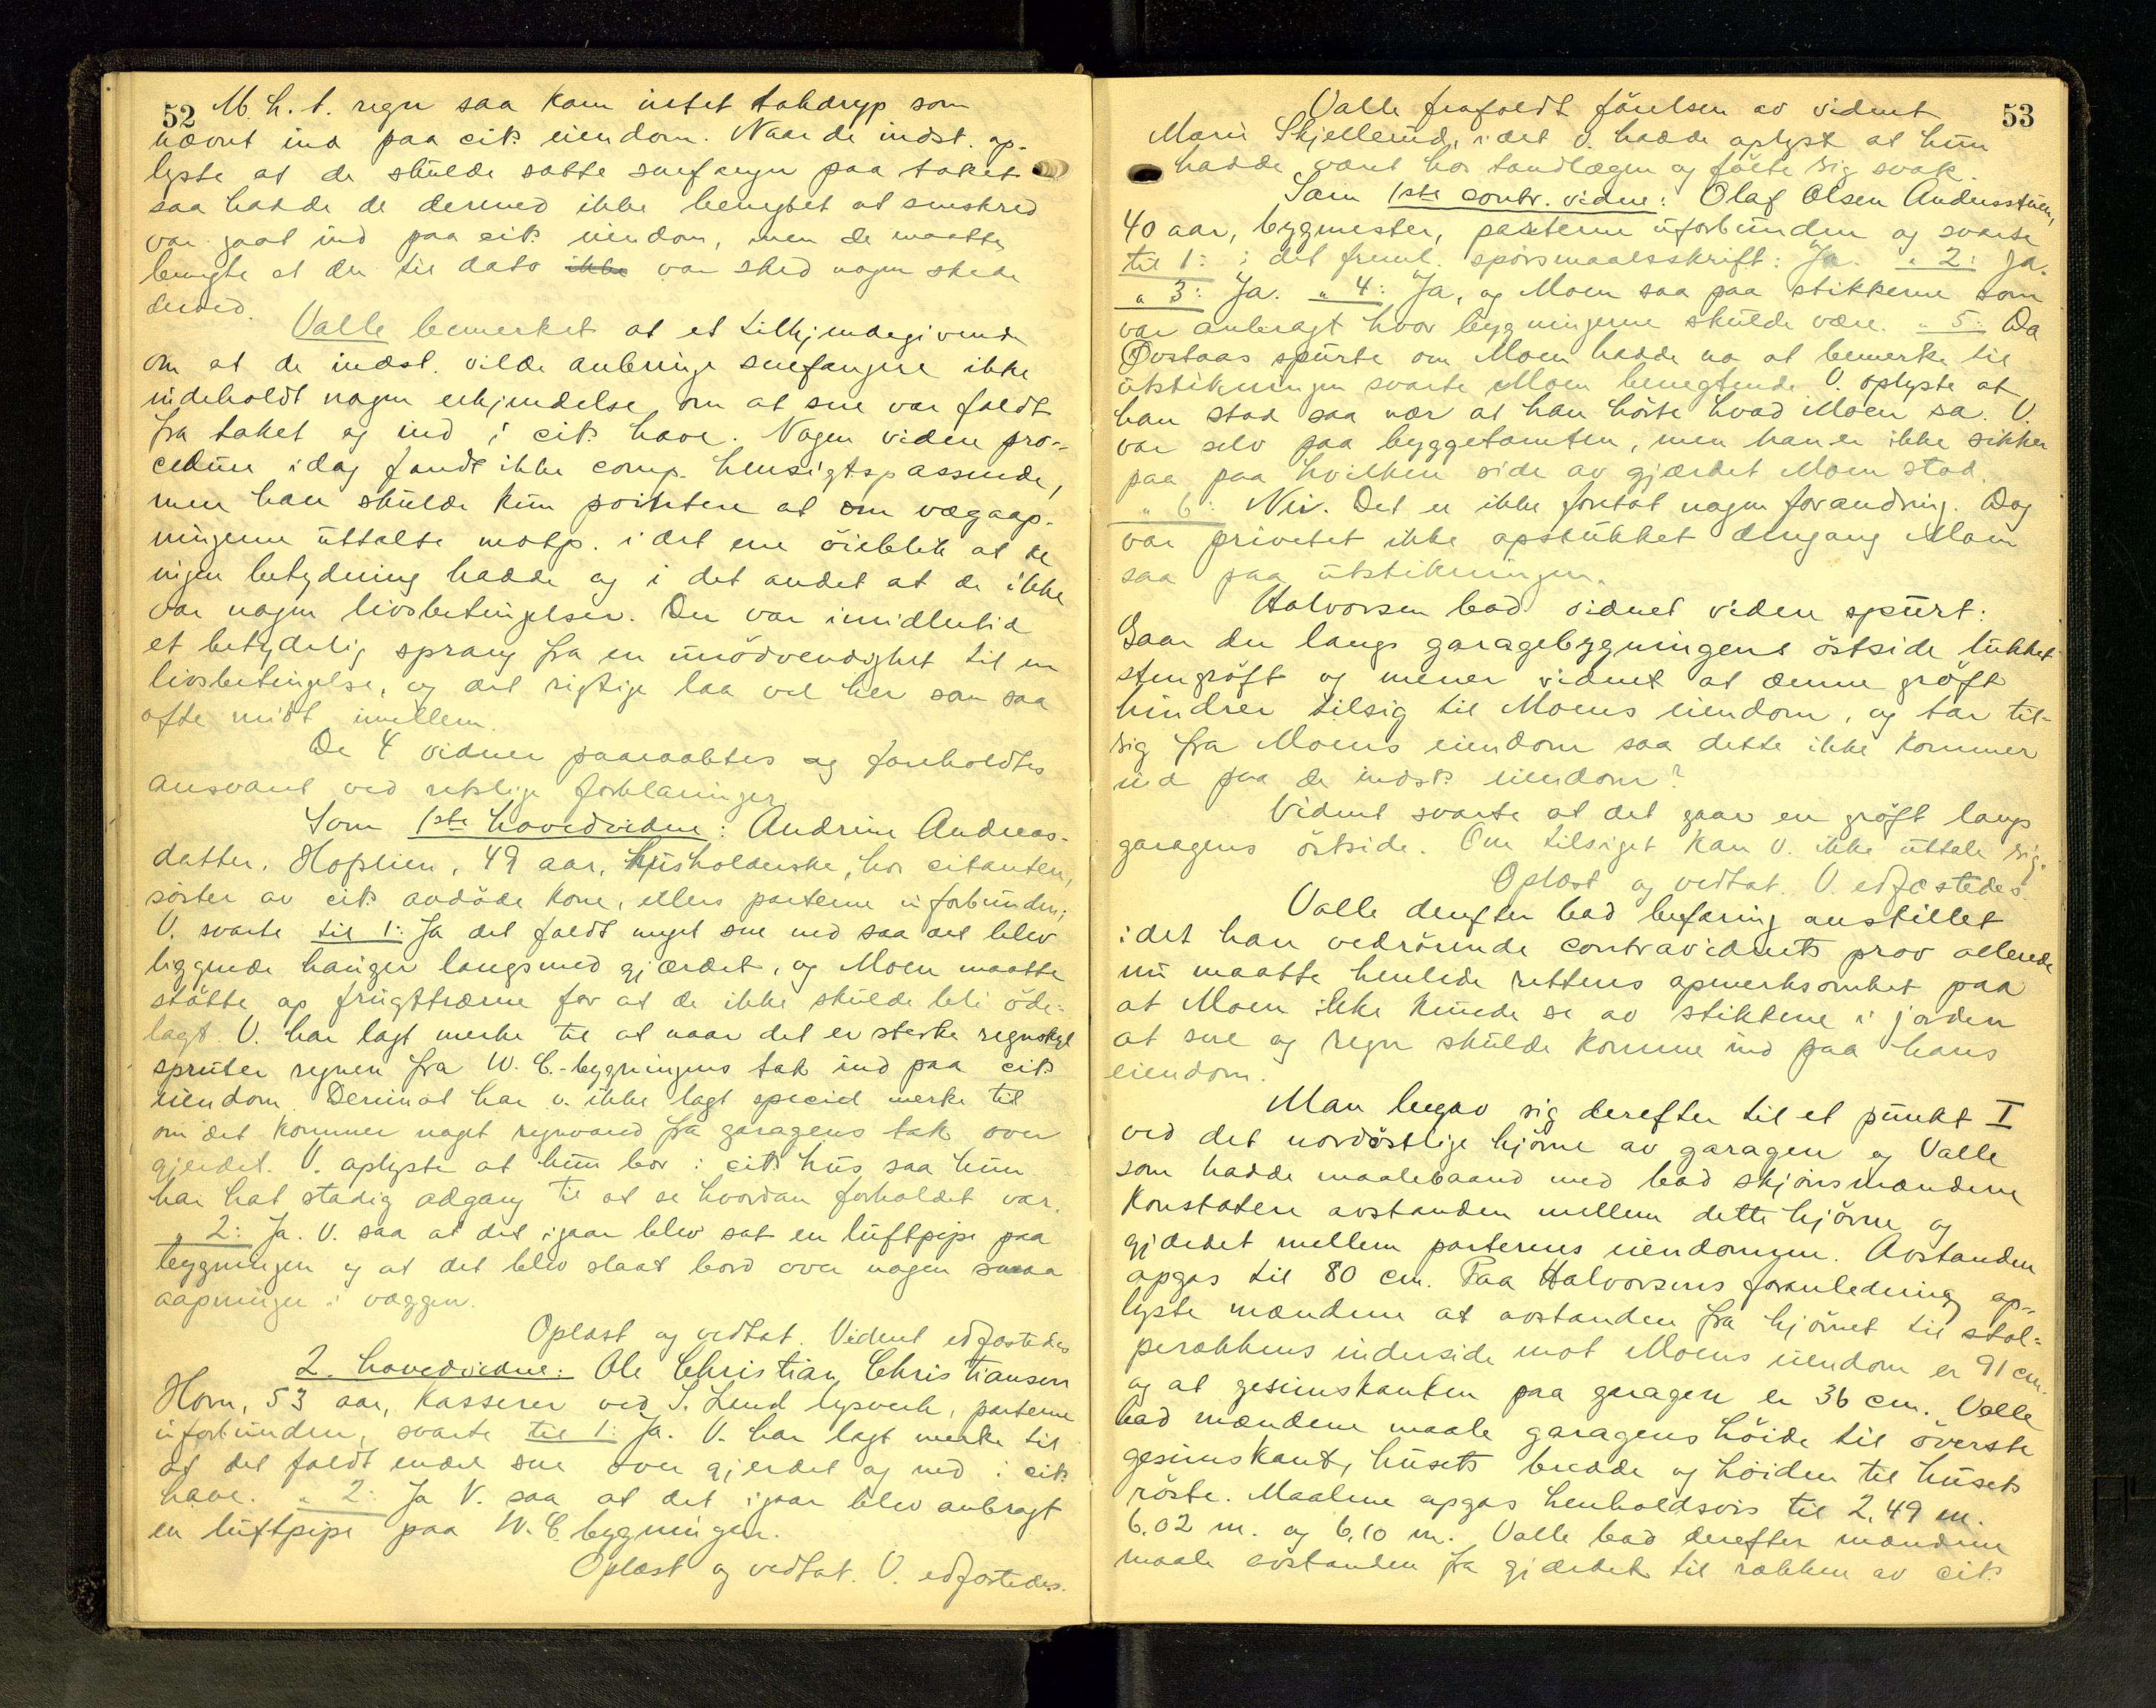 52 M. h. t. regn saa kam intet takdryp som
nævnt ind paa cits eiendom. Naar de indst. op-
lyste at de skulde sætte snefanger paa taket
saa hadde de dermed ikke benegtet at sneskred
var gaat ind paa cits eiendom, men de maatte
benegte at der til dato ikke var sked nogen skade
derved.
Valle bemerket at et tilkjendegivende
om at de indst. vilde anbringe snefangere ikke
indeholdt nogen erkjendelse om at sne var faldt
fra taket og ind i cits have. Nogen videre pro-
cedure idag fandt ikke comp. hensigtspassende,
men han skulde kun pointere at om vægaap-
ningerne uttalte motp. i det ene öieblik at de
ingen betydning hadde og i det andet at de ikke
var nogen livsbetingelser. Der var imidlertid
et betydelig sprang fra en unödvendighet til en
livsbetingelse, og det rigtige laa vel her som saa
ofte midt imellem.
De 4 vidner paaraabtes og foreholdtes
ansvaret ved retslige forklaringer.
Som 1ste hovedvidne: Andrine Andreas-
datter, Hoplien, 49 aar, husholderske, hos citanten,
söster av cits avdöde kone, ellers parterne uforbunden;
V. svarte til 1: Ja det faldt meget sne ned saa det blev
liggende hauger langsmed gjærdet, og Moen maatte
stötte op frugttrærne for at de ikke skulde bli öde-
lagt. V. har lagt merke til at naar det er sterke regnskyl
spruter regnen fra W. C.-bygningens tak ind paa cits
eiendom. Derimot har v. ikke lagt speciel merke til
om det kommer noget regnvand fra garagens tak over
gjerdet. V. oplyste at hun bor i cits hus, saa hun
har hat stadig adgang til at se hvordan forholdet var.
" 2: Ja. V. saa at det igaar blev sat en luftpipe paa
bygningen og at det blev slaat bord over nogen smaa
aapninger i væggen.
Oplæst og vedtat. Vidnet edfæstedes
2. hovedvidne: Ole Christian Christiansen
Horn, 53 aar, Kasserer ved S. Land lysverk, parterne
uforbunden, svarte til 1: Ja. V. har lagt merke til
at det faldt endel sne over gjerdet og ned i cits
have. " 2: Ja V. saa at det igaar blev anbragt
en luftpipe paa W. C. bygningen.
Oplæst og vedtat. V. edfæstedes.
53
Valle frafaldt förelsen av vidnet
Marie Skjellerud, idet v. hadde oplyst at hun
hadde været hos tandlægen og fölte sig svak.
Som 1ste contr. vidne: Olaf Olsen Andersstuen,
40 aar, bygmester, parterne uforbunden og svarte
til 1: i det freml. spörsmaalsskrift: Ja. " 2: Ja.
" 3: Ja. " 4: Ja, og Moen saa paa stikkerne som
var anbragt hvor bygningerne skulde være. " 5: Da
Ovstaas spurte om Moen hadde no at bemerke til
utstikningen svarte Moen benegtende. V. oplyste at
han stod saa nær at han hörte hvad Moen sa. V.
var selv paa byggetomten, men han er ikke sikker
paa paa hvilken side av gjærdet Moen stod.
" 6: Nei. Det er ikke foretat nogen forandring. Dog
var privetet ikke opstukket dengang Moen
saa paa utstikningen.
Halvorsen bad vidnet videre spurt:
Gaar der langs garagebygningens östside lukket
stengröft og mener vidnet at denne gröft
hindrer tilsig til Moens eiendom, og tar til-
sig fra Moens eiendom saa dette ikke kommer
ind paa de indsts eiendom?
Vidnet svarte at det gaar en gröft langs
garagens östside. Om tilsiget kan v. ikke uttale sig.
Oplæst og vedtat. V. edfæstedes.
Valle derefter bad befaring anstillet
idet han vedrörende contravidnets prov allerede
nu maatte henlede rettens opmerksomhet paa
at Moen ikke kunde se av stikkene i jorden
at sne og regn skulde komme ind paa hans
eiendom.
Man begav sig derefter til et punkt I
ved det nordöstlige hjörne av garagen og Valle
som hadde maalebaand med bad skjönsmændene
Konstatere avstanden mellem dette hjörne og
gjærdet mellem parternes eiendommen. Avstanden
opgas til 80 cm. Paa Halvorsens foranledning op-
lyste mændene at avstanden fra hjörnet til stol-
perækkens inderside mot Moens eiendom er 91 cm.
og at gesimskanten paa garagen er 36 cm. Valle
bad mændene maale garagens höide til överste
gesimskant, husets bredde og höiden til husets
röste. Maalene opgas henholdsvis til 2,49 m.
6,02 m. og 6,10 m. Valle bad derefter mændene
maale avstanden fra gjærdet til rækken av cits